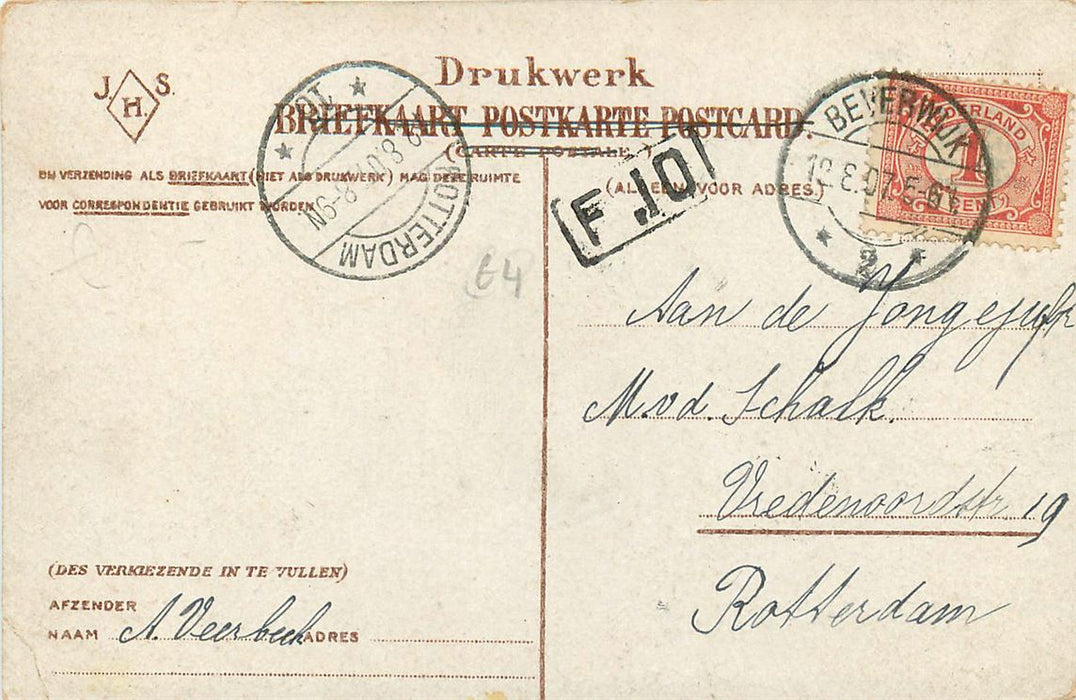 J. H. S.
Drukwerk
BRIEFKAART POSTKARTE POSTCARD.
(CARTE POSTALE)
BIJ VERZENDING ALS BRIEFKAART (NIET ALS DRUKWERK) MAG DEZE RUIMTE
VOOR CORRESPONDENTIE GEBRUIKT WORDEN
(ALLEEN VOOR ADRES)
ROTTERDAM
8-9N
F JO
BEVERWIJK
2
1
CENT
64
Aan de Jongejufr
M.v.d. Schalk.
Vredenoordstr 19
Rotterdam
(DES VERKIEZENDE IN TE VULLEN)
AFZENDER
NAAM A. Veerbeek ADRES